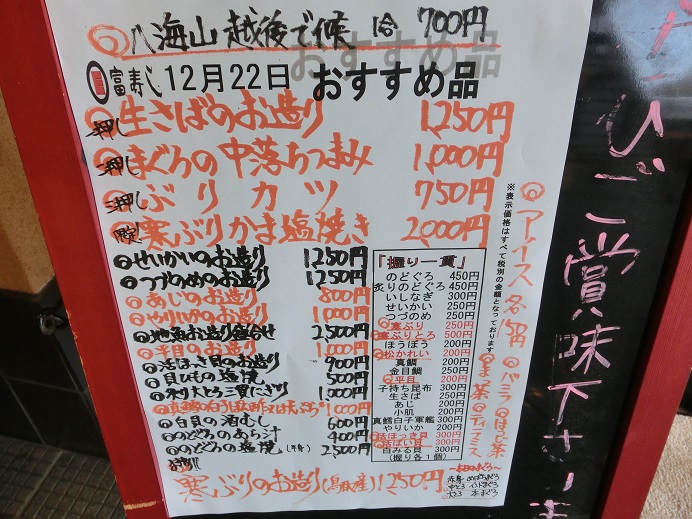 八海山 越後で候 1合 700円
富寿し 12月22日 おすすめ品
押し 生さばのお造り 1,250円
押し まぐろの中落ちつまみ 1,000円
押し ぶりカツ 750円
限定 寒ぶりかま塩焼き 2,000円
せいかいのお造り 1250円
つづのめのお造り 1250円
あじのお造り 800円
やりいかのお造り 1000円
地魚お造り盛合せ 2,500円
平目のお造り 1,000円
活ほっき貝のお造り 900円
貝ひもの塩焼 500円
1,000円
1000円
白貝の酒むし 600円
のどぐろのあら汁 400円
のどぐろの塩焼(半身) 2,500円
寒ぶりのお造り(鳥取産)1250円
「握り一貫」
のどぐろ 450円
炙りのどぐろ 450円
いしなぎ 300円
せいかい 250円
つづのめ 250円
寒ぶり 250円
寒ぶりとろ 500円
ほうぼう 200円
松かれい 200円
真鯛 200円
金目鯛 250円
平目 300円
子持ち昆布 300円
生さば 250円
あじ 200円
小肌 200円
真鱈白子軍艦 300円
やりいか 200円
活ほっき貝 300円
活ばい貝 300円
白みる貝 300円
(握り各1個)
※表示価格はすべて税別の金額となっております
アイス各150円
バニラ
ほうじ茶
ティラミス
本まぐろ
ご賞味下さいま